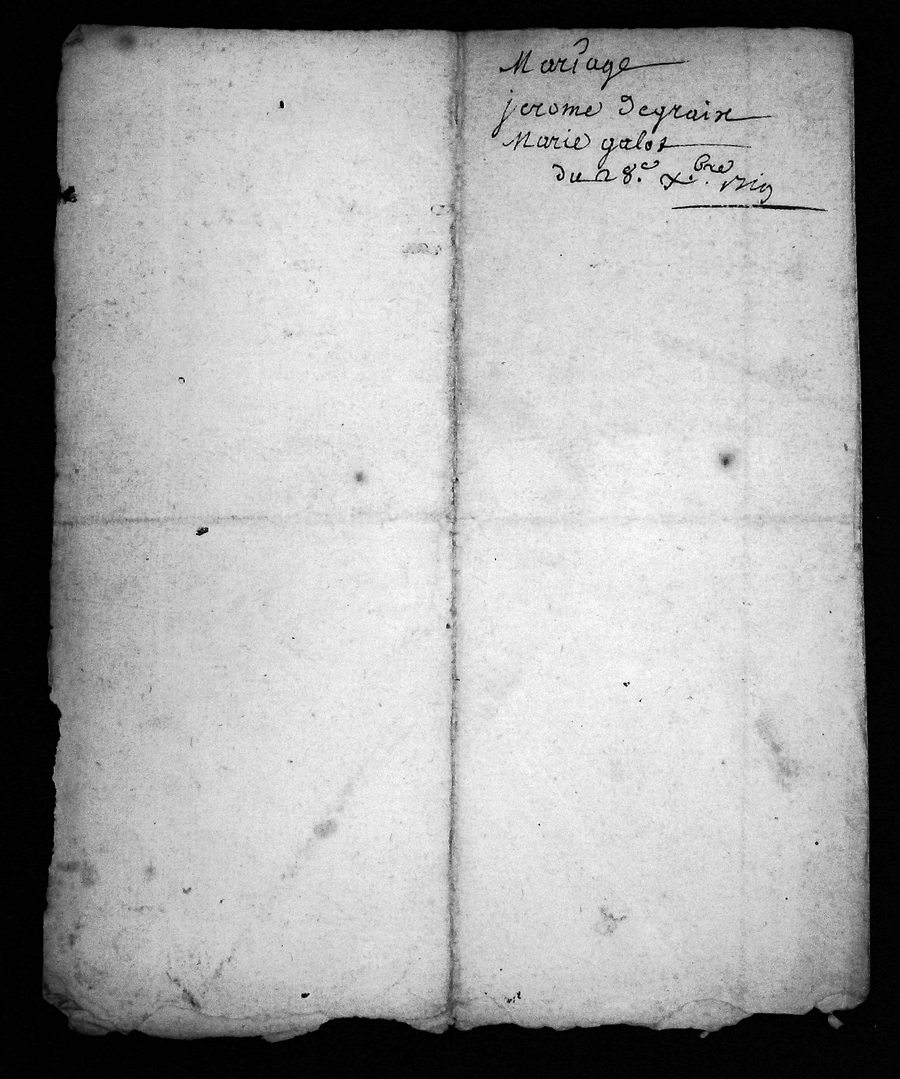 Mariage
jerome Degraix
Marie galot
du 28.e X.bre 1719